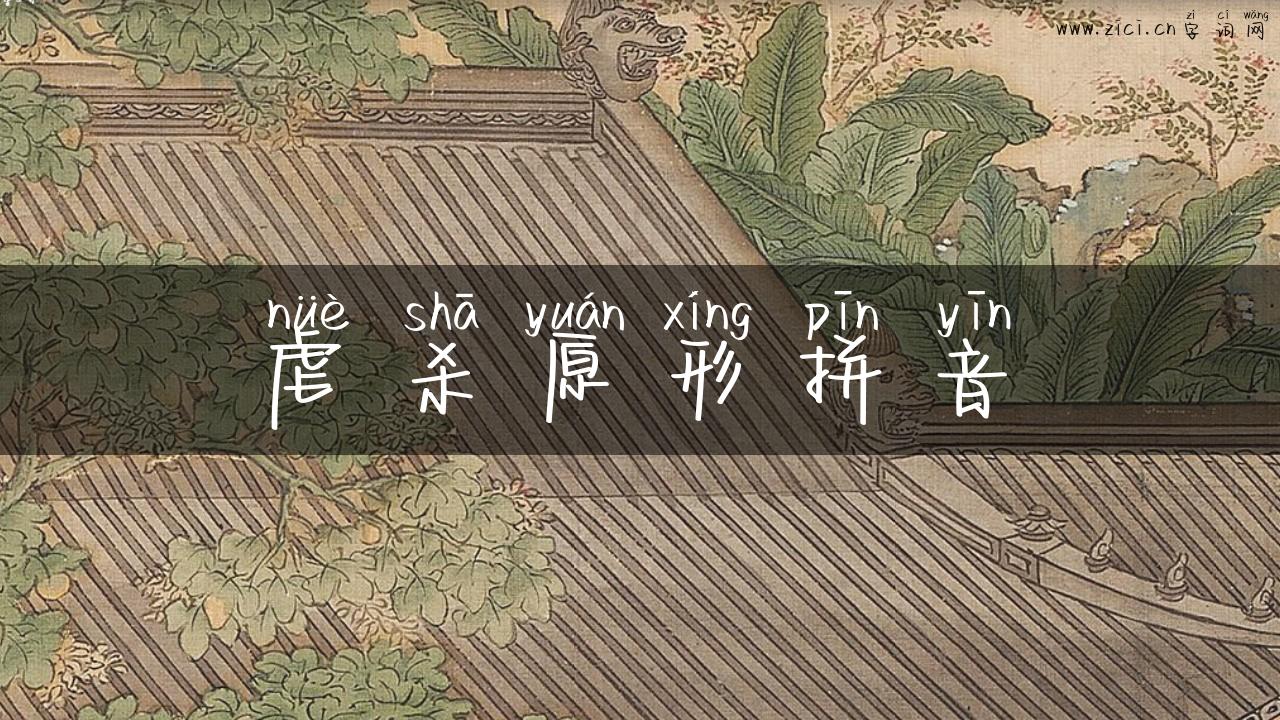 zì cí wǎng
www.zici.cn 字词网
nüè shā yuán xíng pīn yīn
虐杀原形拼音